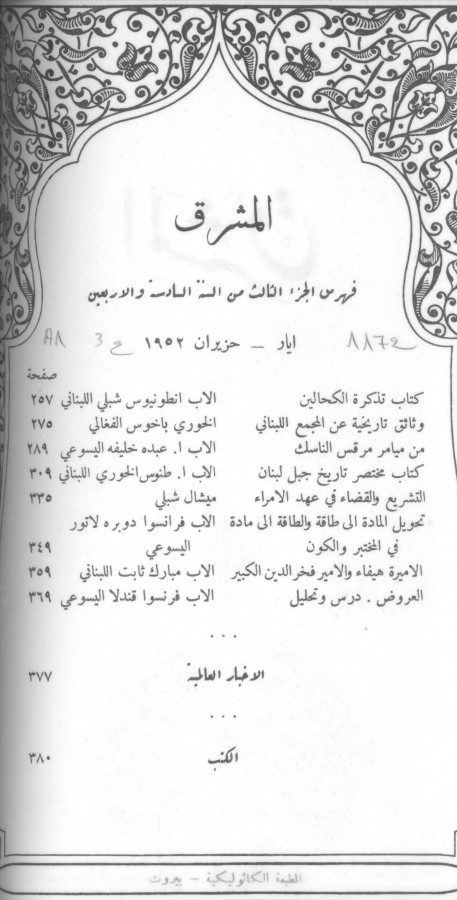 المشرق
فهرس الجزء الثالث من السنة السادسة والاربعين
ايار – حزيران ١٩٥٢
صفحة
كتاب تذكرة الكحالين الاب انطونيوس شبلي اللبناني ٢٥٧
وثائق تاريخية عن المجمع اللبناني الخوري باخوس الفغالي ٢٧٥
من ميامر مرقس الناسك الاب ا. عبده خليفه اليسوعي ٢٨٩
كتاب مختصر تاريخ جبل لبنان الاب ا. طنوس الخوري اللبناني ٣٠٩
التشريع والقضاء في عهد الامراء ميشال شبلي ٣٣٥
تحويل المادة الى طاقة والطاقة الى مادة الاب فرانسوا دوبره لاتور
في المختبر والكون اليسوعي ٣٤٩
الاميرة هيفاء والامير فخر الدين الكبير الاب مبارك ثابت اللبناني ٣٥٩
العروض . درس وتحليل الاب فرنسوا قندلا اليسوعي ٣٦٩
...
الاخبار العالمية ٣٧٧
...
الكتب ٣٨٠
المطبعة الكاثوليكية – بيروت